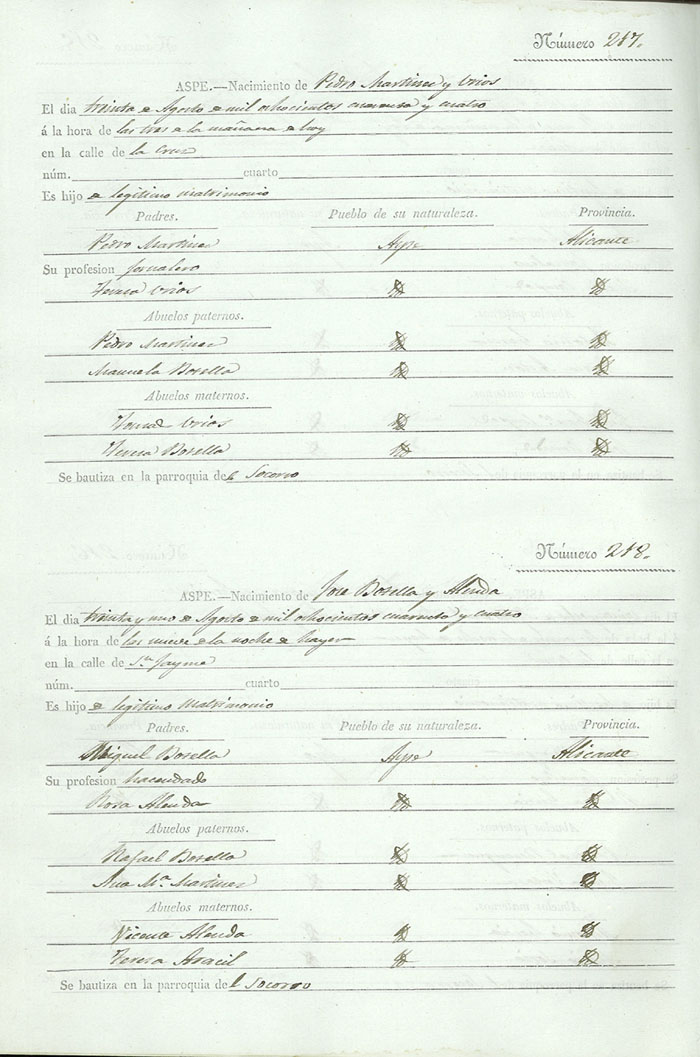 Número 217.
ASPE.—Nacimiento de Pedro Martinez y Urios
El dia treinta de Agosto de mil ochocientos cuarenta y cuatro
á la hora de las tres de la mañana de hoy
en la calle de la Cruz
núm. cuarto
Es hijo de legitimo matrimonio
Padres. Pueblo de su naturaleza. Provincia.
Pedro Martinez Aspe Alicante
Su profesion jornalero
Urios
Abuelos paternos.
Pedro Martinez
Manuela Botella
Abuelos maternos.
Tomas Urios
Teresa Botella
Se bautiza en la parroquia del Socorro
Número 218.
ASPE.—Nacimiento de Jose Botella y Alenda
El dia treinta y uno de Agosto de mil ochocientos cuarenta y cuatro
á la hora de las nueve de la noche de hayer
en la calle de Sn. Jayme
núm. cuarto
Es hijo de legitimo matrimonio
Padres. Pueblo de su naturaleza. Provincia.
Miguel Botella Aspe Alicante
Su profesion hacendado
Rosa Alenda
Abuelos paternos.
Rafael Botella
Ana Mª. Martinez
Abuelos maternos.
Vicente Alenda
Teresa Aracil
Se bautiza en la parroquia del Socorro